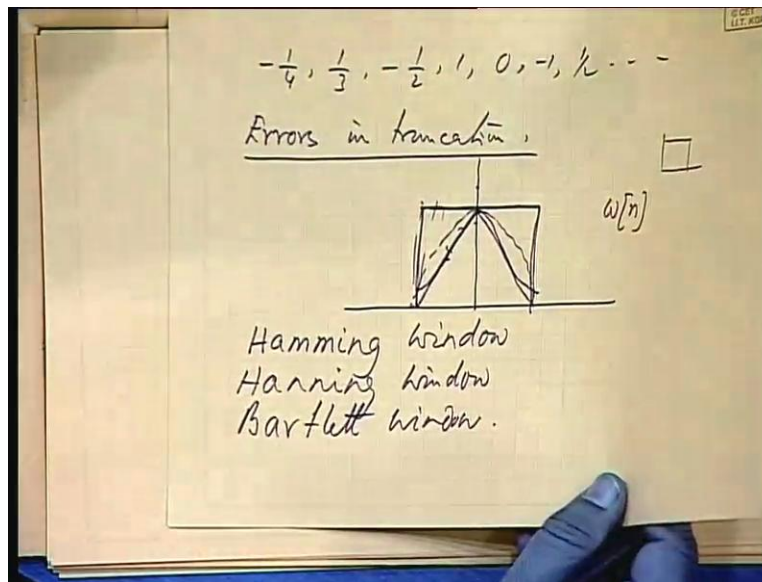 -1/4, 1/3, -1/2, 1, 0, -1, 1/2 . . . -
Errors in truncation.
w[n]
Hamming window
Hanning window
Bartlett window.